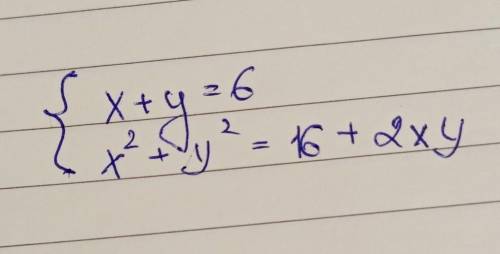 { x + y = 6
x² + y² = 16 + 2xy